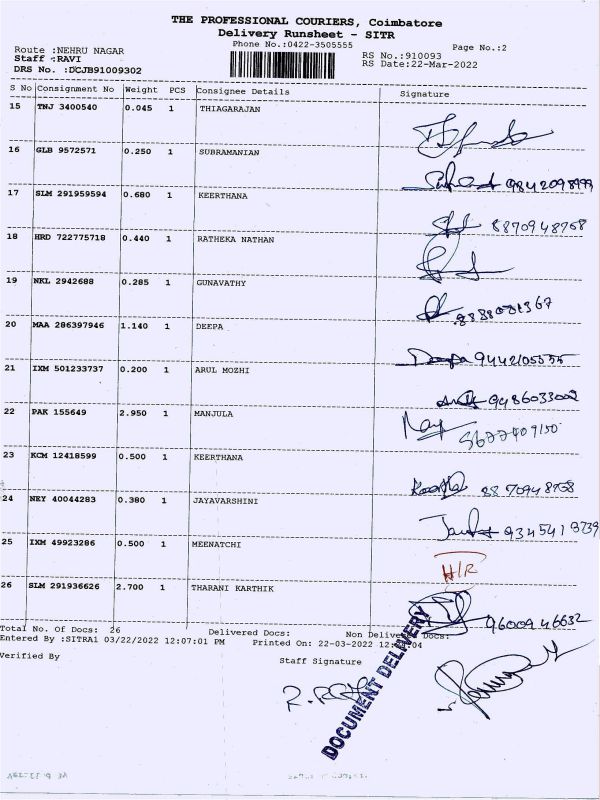 THE PROFESSIONAL COURIERS, Coimbatore
Delivery Runsheet - SITR
Phone No.:0422-3505555
Page No.:2
Route :NEHRU NAGAR
RS No.:910093
Staff :RAVI
RS Date:22-Mar-2022
DRS No. :DCJB91009302
S No Consignment No Weight PCS Consignee Details Signature
15 TNJ 3400540 0.045 1 THIAGARAJAN
16 GLB 9572571 0.250 1 SUBRAMANIAN
17 SLM 291959594 0.680 1 KEERTHANA
8870948758
18 HRD 722775718 0.440 1 RATHEKA NATHAN
19 NKL 2942688 0.285 1 GUNAVATHY
20 MAA 286397946 1.140 1 DEEPA
Deepa 9442105555
21 IXM 501233737 0.200 1 ARUL MOZHI
9486033002
22 PAK 155649 2.950 1 MANJULA
23 KCM 12418599 0.500 1 KEERTHANA
8870948758
24 NEY 40044283 0.380 1 JAYAVARSHINI
25 IXM 49923286 0.500 1 MEENATCHI
H/R
26 SLM 291936626 2.700 1 THARANI KARTHIK
9600946632
Total No. Of Docs: 26 Delivered Docs: Non Delivered Docs:
Entered By :SITRA1 03/22/2022 12:07:01 PM Printed On: 22-03-2022
Verified By
Staff Signature
DOCUMENT DELIVERY